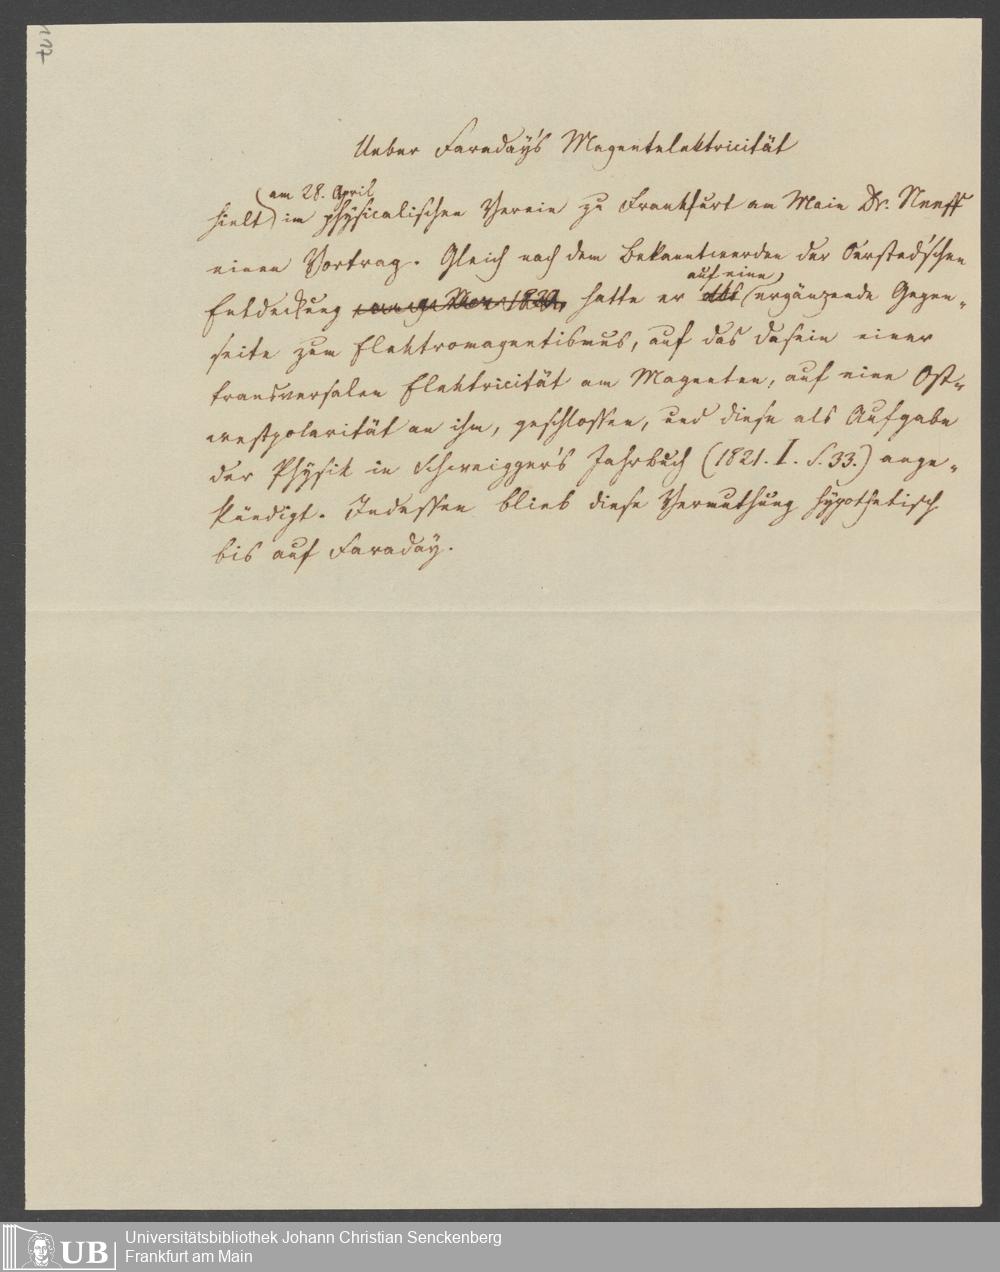 Ueber Faraday's Magnetelektricität
am 28. April
hielt im physicalischen Verein zu Frankfurt am Main Dr. Neeff
einen Vortrag. Gleich nach dem Bekanntwerden der Oersted'schen
auf eine
Entdeckung hatte er als ergänzende Gegen-
seite zum Elektromagnetismus, auf das Dasein einer
transversalen Elektricität am Magneten, auf eine Ost-
westpolarität an ihm, geschlossen, und diese als Aufgabe
der Physik in Schweigger's Jahrbuch (1821. I. S. 33.) ange-
kündigt. Indessen blieb diese Vermuthung hypothetisch
bis auf Faraday.
Universitätsbibliothek Johann Christian Senckenberg
UB
Frankfurt am Main